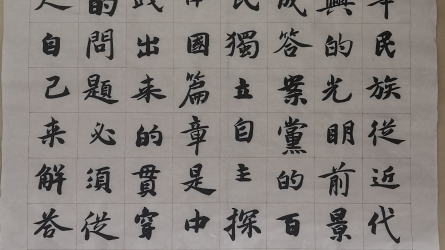 民族從近代
興的光明前景
成答案黨的百
民獨立自主探
國篇章是中
践出来的貫穿
的問題必須從
人自己来解答